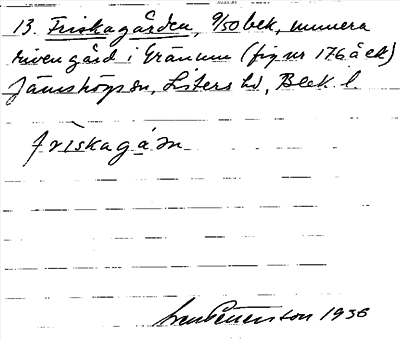 13. Friskagården, 9/50 bek, numera
riven gård i Gränum (fig nr 176 å ek)
Jämshögs sn, Listers hd, Blek. l.
friskagǻɹn
Pettersson 1936